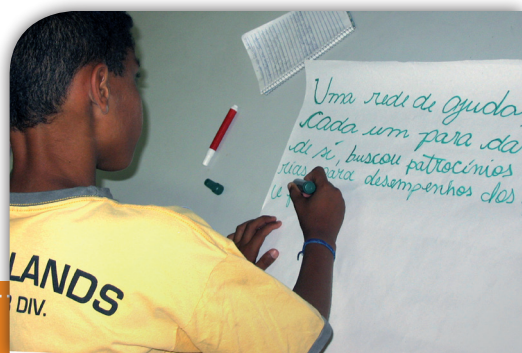 Uma rede de ajuda
cada um para da
de sí, buscou patrocínios
rias para desempenhos dos
LANDS
DIV.